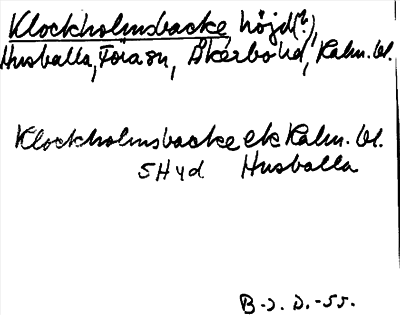 Klockholmsbacke, höjd(?),
Husballa, Föra sn, Åkerbo hd, Kalm. l.
Klockholmsbacke ek Kalm. bl.
5Hyd Husballa
B-J. D.-55.